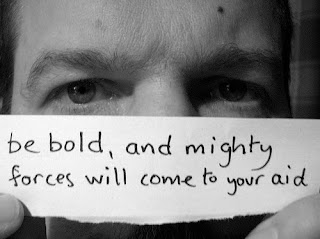 be bold, and mighty
forces will come to your aid